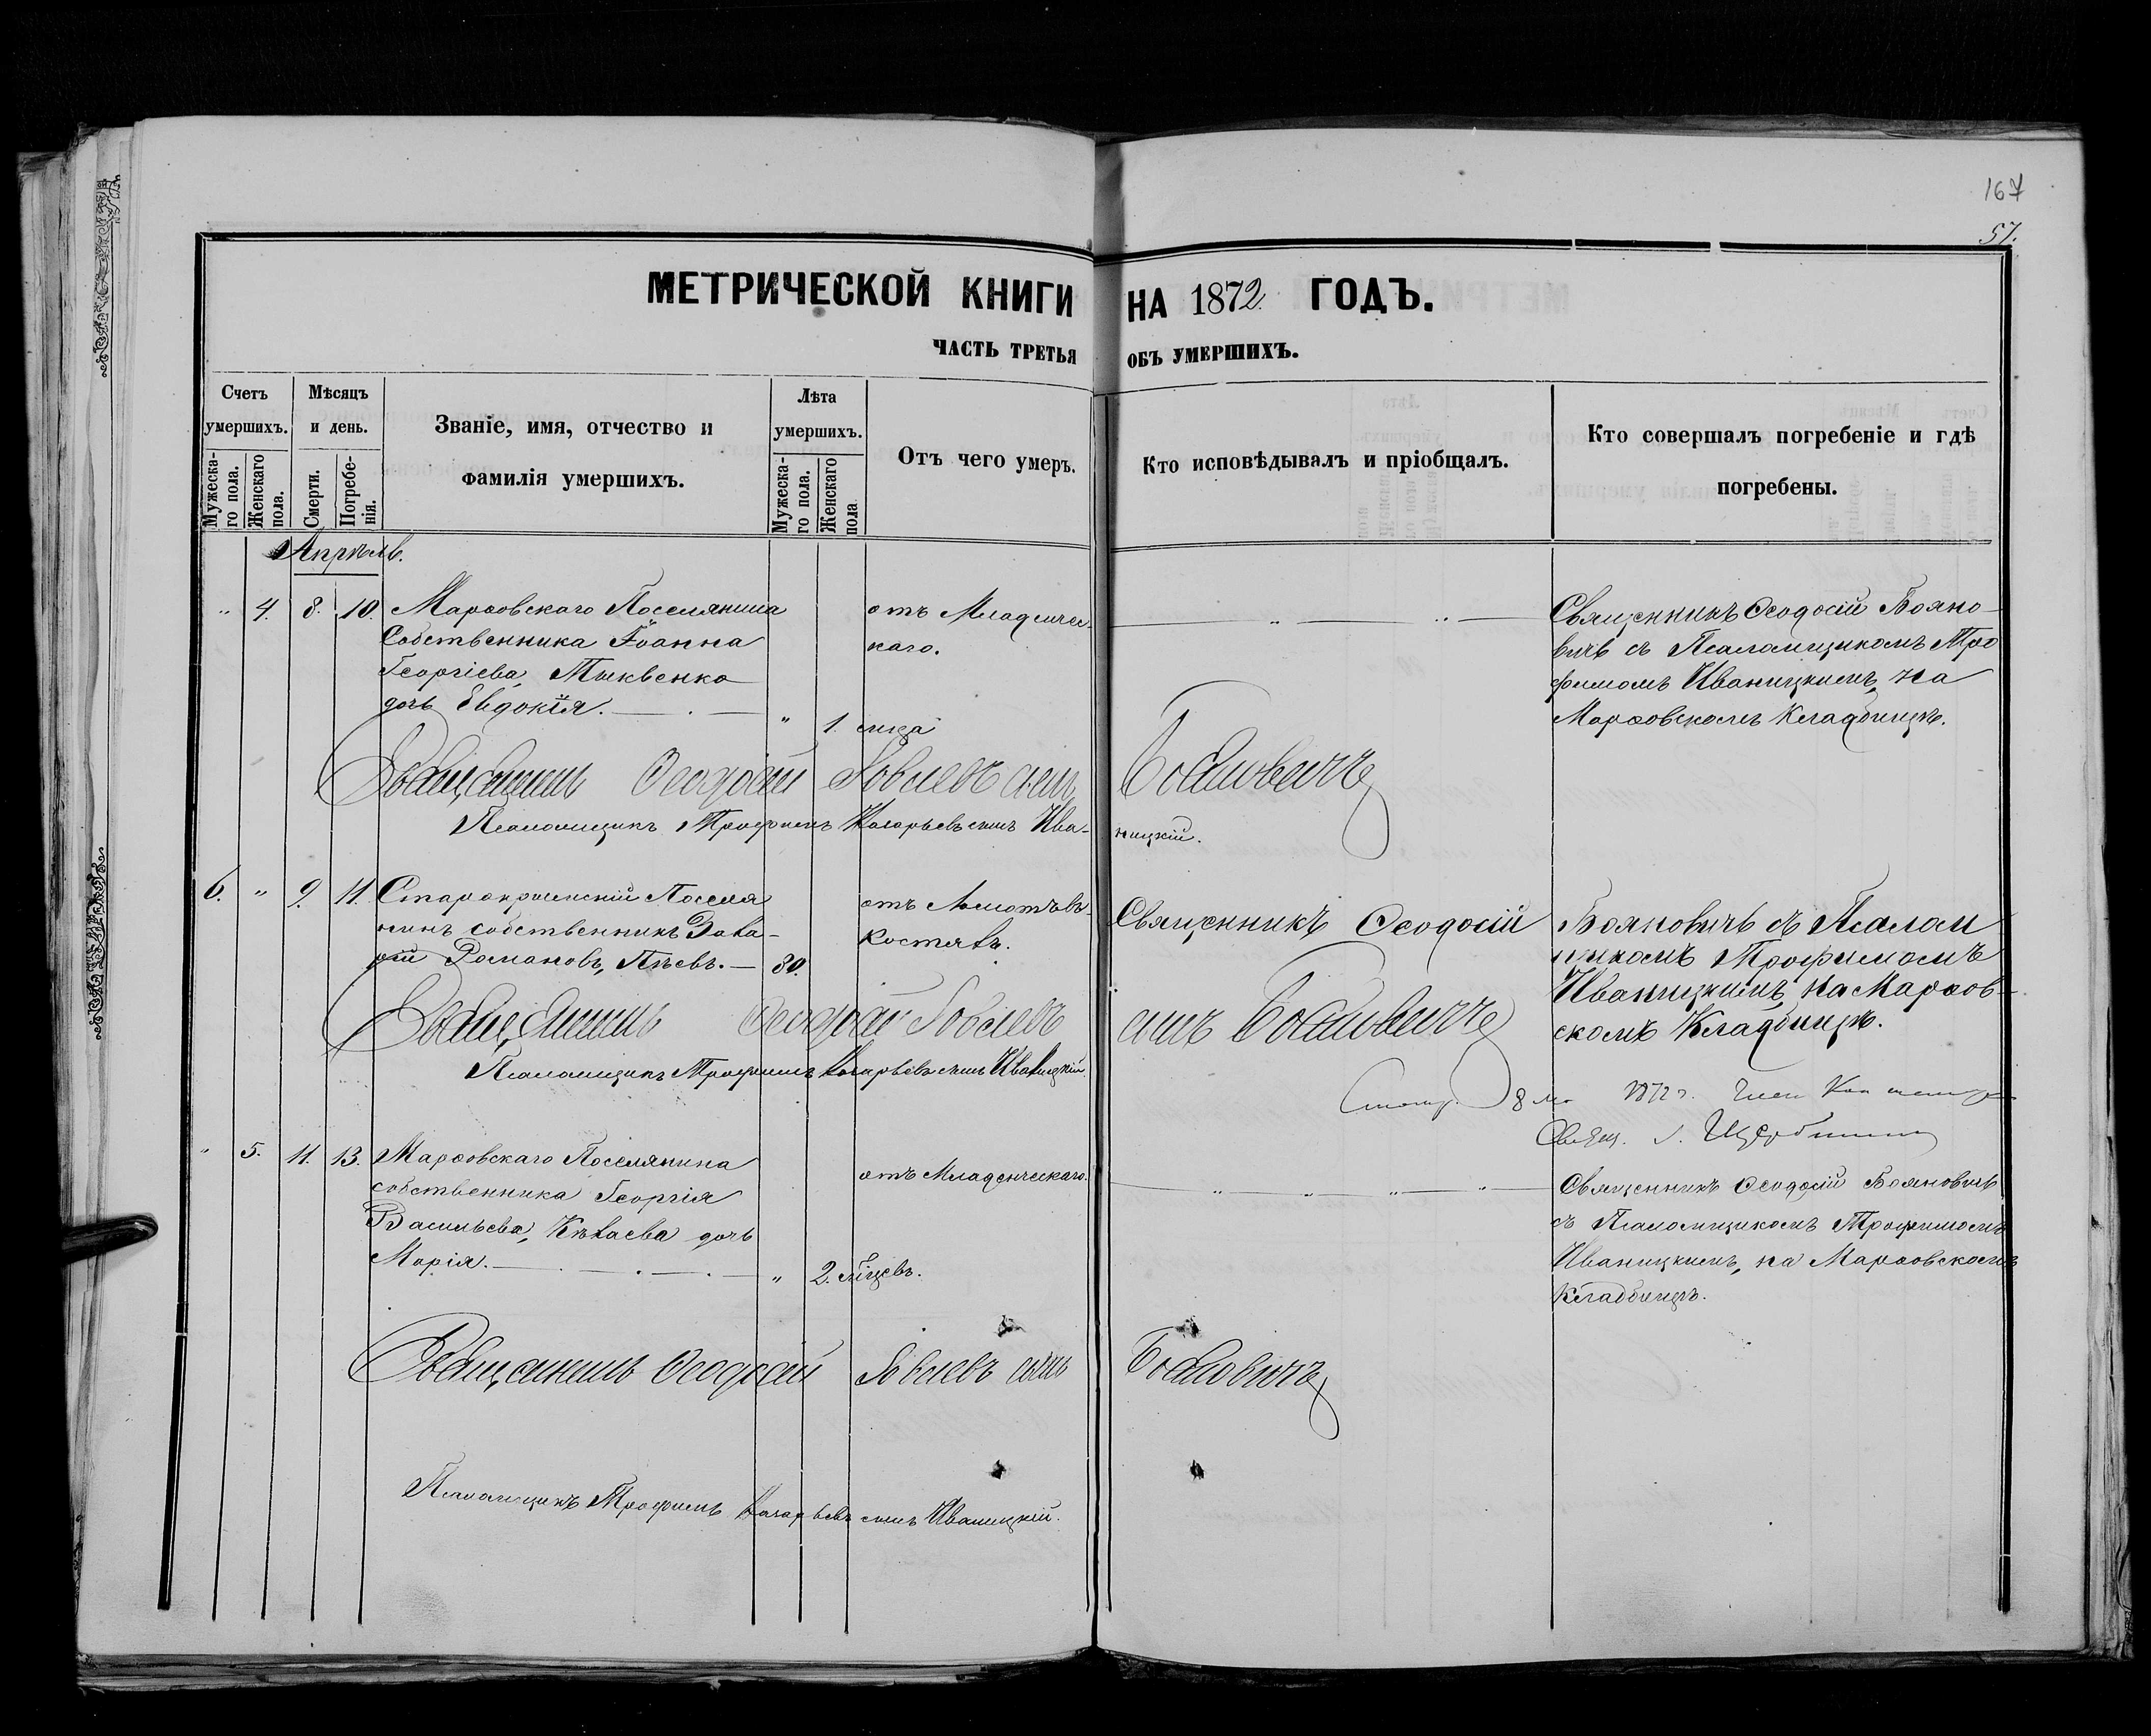 167
57.
МЕТРИЧЕСКОЙ КНИГИ НА 1872. ГОДЪ.
ЧАСТЬ ТРЕТЬЯ ОБЪ УМЕРШИХЪ.
Счетъ умершихъ.
Мужеска-го пола.
Женскаго пола.
Мѣсяцъ и день.
Смерти.
Погребе-нія.
Званіе, имя, отчество и
фамилія умершихъ.
Лѣта умершихъ.
Мужеска-го пола.
Женскаго пола
Отъ чего умеръ.
Кто исповѣдывалъ и пріобщалъ.
Кто совершалъ погребеніе и гдѣ
погребены.
Апрѣль.
" 4. 8. 10. Марфовскаго Поселянина
Собственника Іоанна
Георгіева,
дочь Евдокія. " 1. мца
отъ Младенчес-
каго.
Священникъ Ѳеодосій Бояно-
вичъ съ Псаломщикомъ Тро
фимомъ Иваницкимъ, на
Марфовскомъ Кладбищѣ.
Священникъ Ѳеодосій Іовлевъ сынъ Бояновичъ
Псаломщикъ Трофимъ Назарьевъ сынъ Ива-
ницкій.
6. " 9. 11. Старокрымскій Поселя
нинъ собственникъ Заха-
рій Романовъ, 80.
отъ
костяхъ.
Священникъ Ѳеодосій Бояновичъ съ Псалом
щикомъ Трофимомъ
Иваницкимъ, на Марфов-
скомъ Кладбищѣ.
Священникъ Ѳеодосій Іовлевъ сынъ Бояновичъ
Псаломщикъ Трофимъ Назарьевъ сынъ Иваницкій.
8 1872 г.
" 5. 11. 13. Марфовскаго Поселянина
собственника Георгія
Васильева, дочь
Марія. " 2. мѣцевъ.
отъ Младенческаго.
Священникъ Ѳеодосій Бояновичъ
съ Псаломщикомъ Трофимомъ
Иваницкимъ, на Марфовскомъ
Кладбищѣ.
Священникъ Ѳеодосій Іовлевъ сынъ Бояновичъ
Псаломщикъ Трофимъ Назарьевъ сынъ Иваницкій.